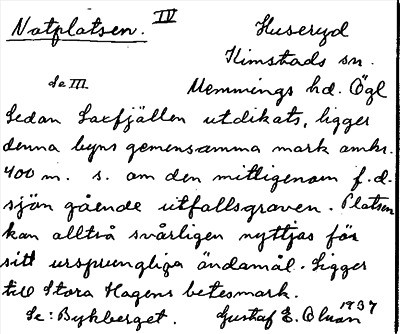 Notplatsen. IV Huseryd
Kimstads sn.
Se III. Memmings hd. Ögl
Sedan Saxfjällen utdikats, ligger
denna byns gemensamma mark omkr.
400 m. s. om den mittigenom f.d.
sjön gående utfallsgraven. Platsen
kan alltså svårligen nyttjas för
sitt ursprungliga ändamål. Ligger
till Stora Hagens betesmark.
Se: Bykberget. Gustaf E. Olson 1937